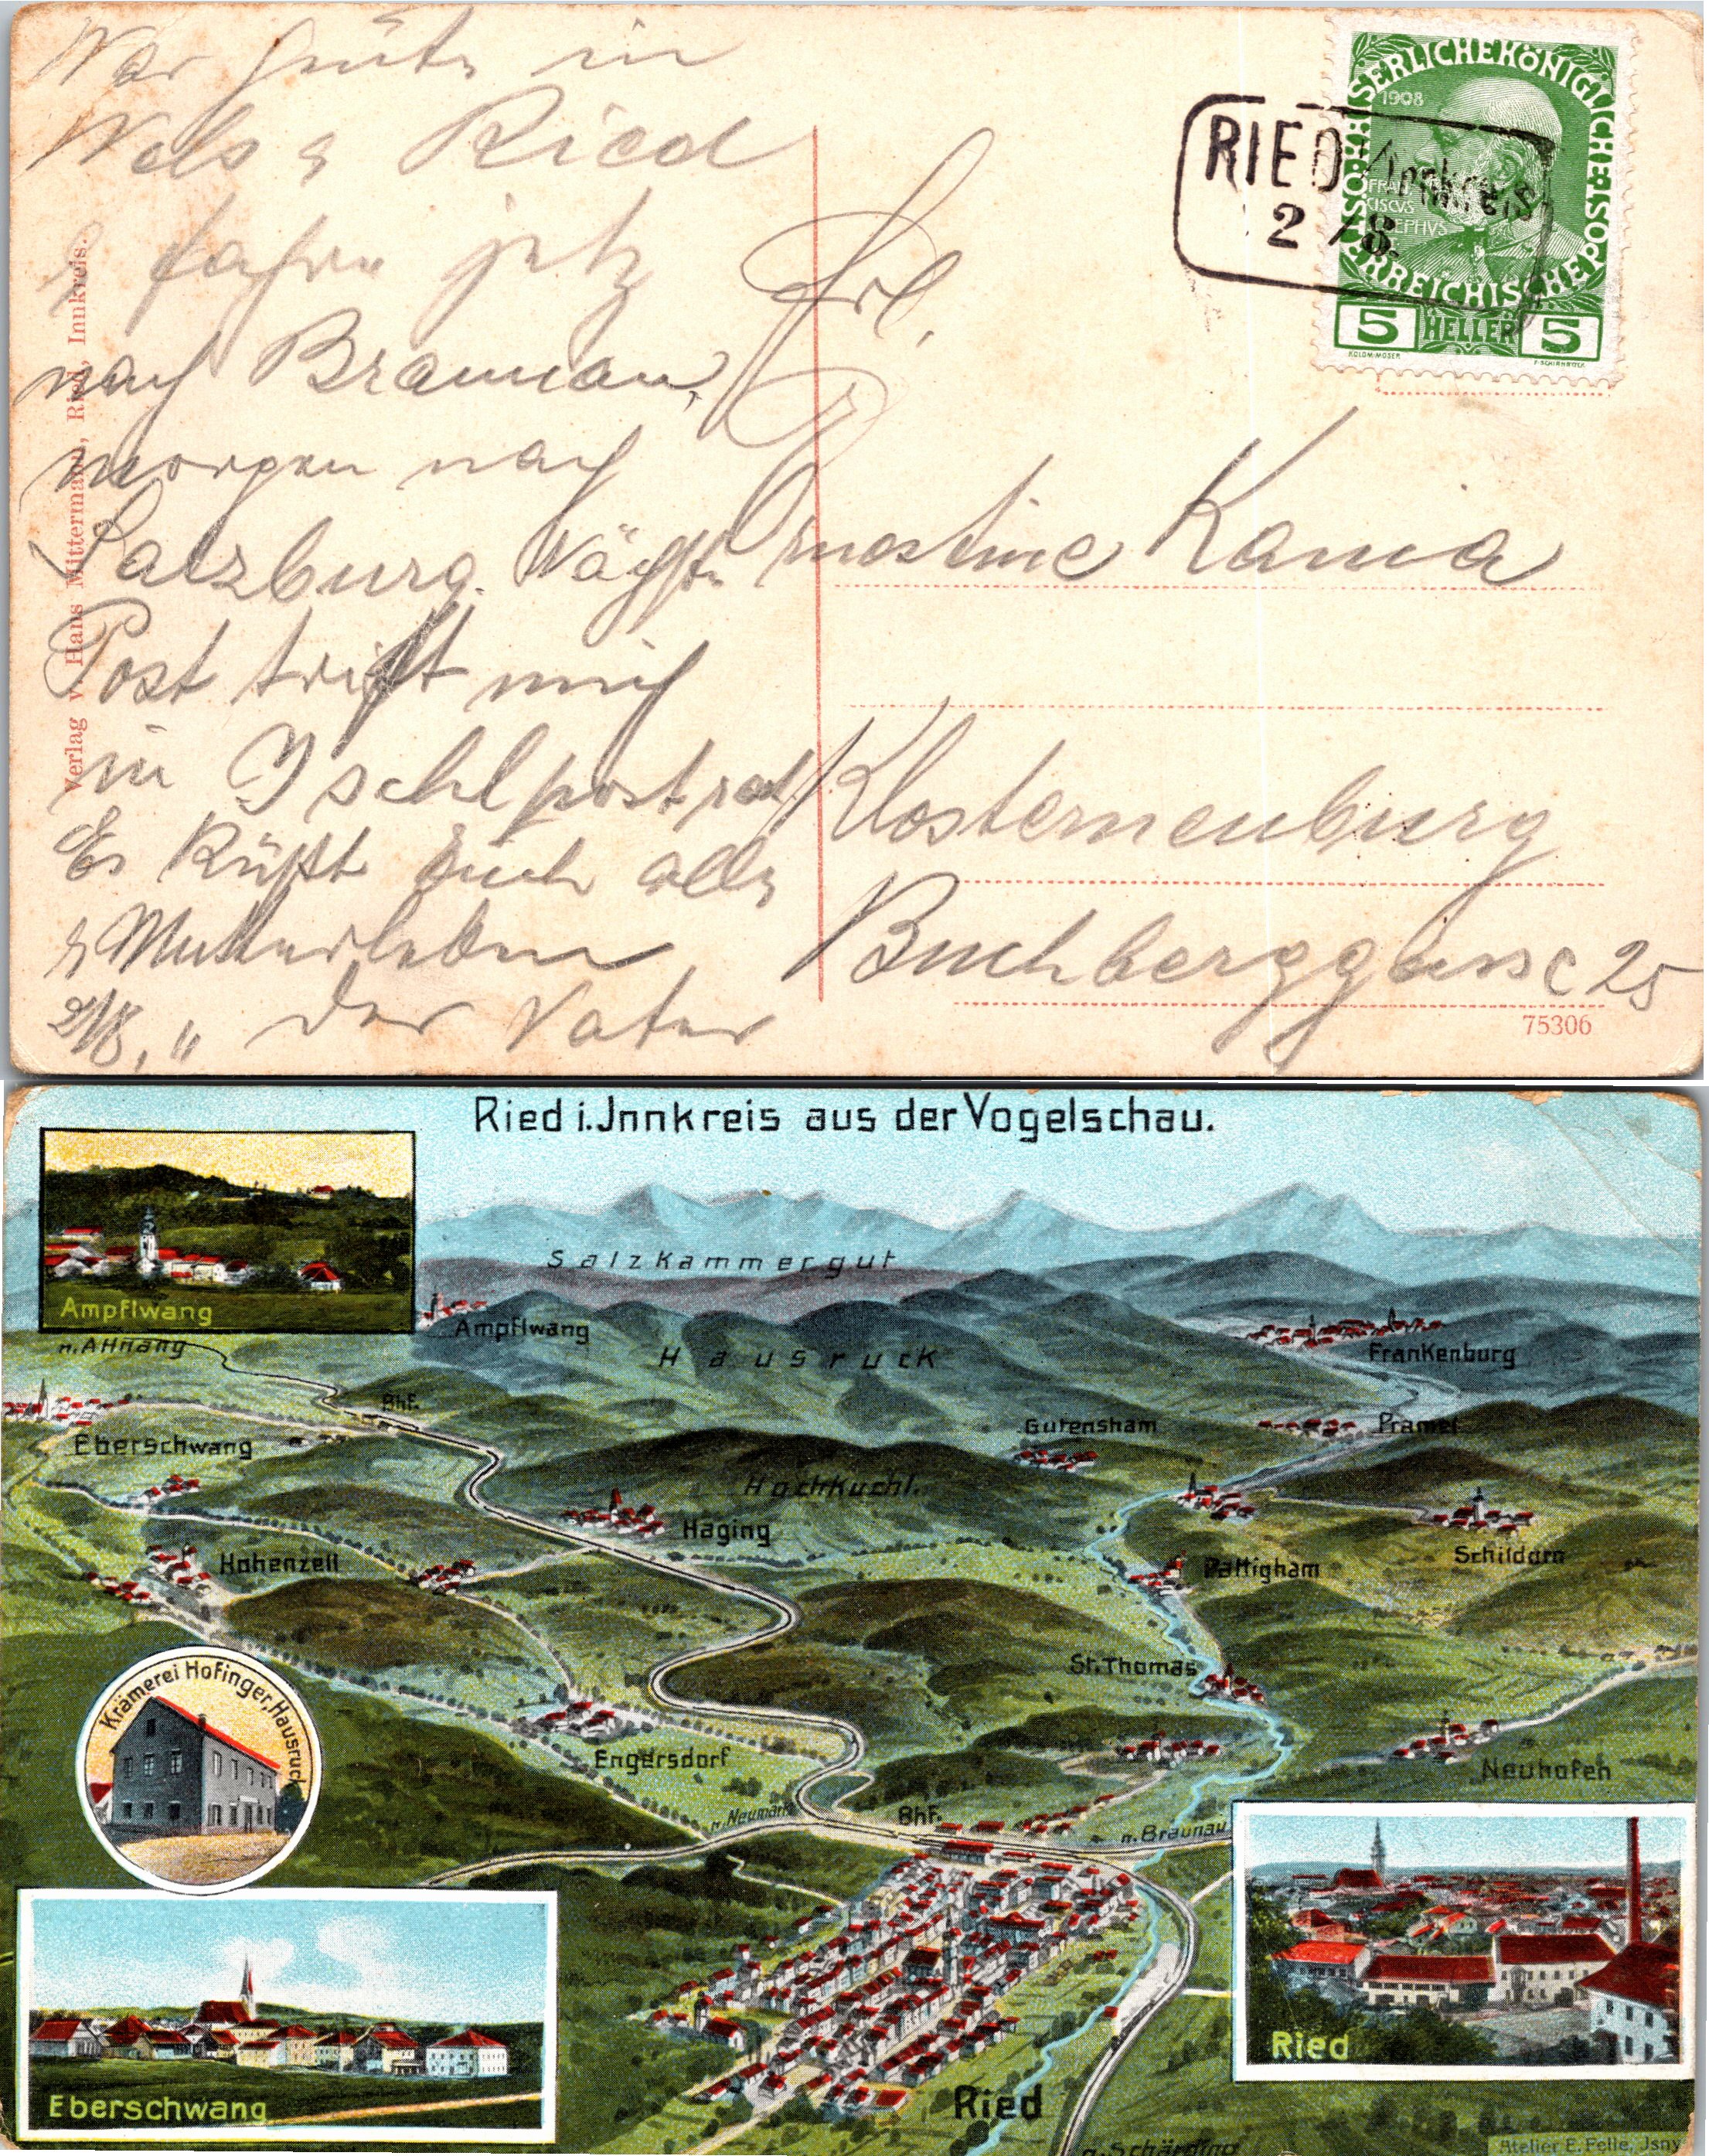 War heute in
Wels & Ried
& fahre jetz
nach Braunau,
morgen nach
Salzburg. Nächste
Post trifft mich
in Ischl postrest.
Es küßt Euch alle
& Mutterleben
der Vater
2/8. "
Frl.
Ernestine Kania
Klosterneuburg
Buchberggasse 25
RIED /Innkreis
2 /8.
KAISERLICHE KÖNIGLICHE ÖSTERREICHISCHE POST
1908
FRAN
CISCVS
IOSEPHVS
5 HELLER 5
KOLOM·MOSER
F·SCHIRNBÖCK
Verlag v. Hans Mittermann, Ried, Innkreis.
75306
Ried i.Jnnkreis aus der Vogelschau.
Ampflwang
Salzkammergut
Ampflwang
n.Attnang
Hausruck
Frankenburg
Bhf.
Eberschwang
Gutensham
Pramet
Hochkuchl.
Haging
Hohenzell
Pattigham
Schildorn
Krämerei Hofinger, Hausruck
St.Thomas
Engersdorf
Neuhofen
n.Neumarkt
Bhf.
n.Braunau
Ried
Eberschwang
Ried
n.Schärding
Atelier E.Felle, Jsny